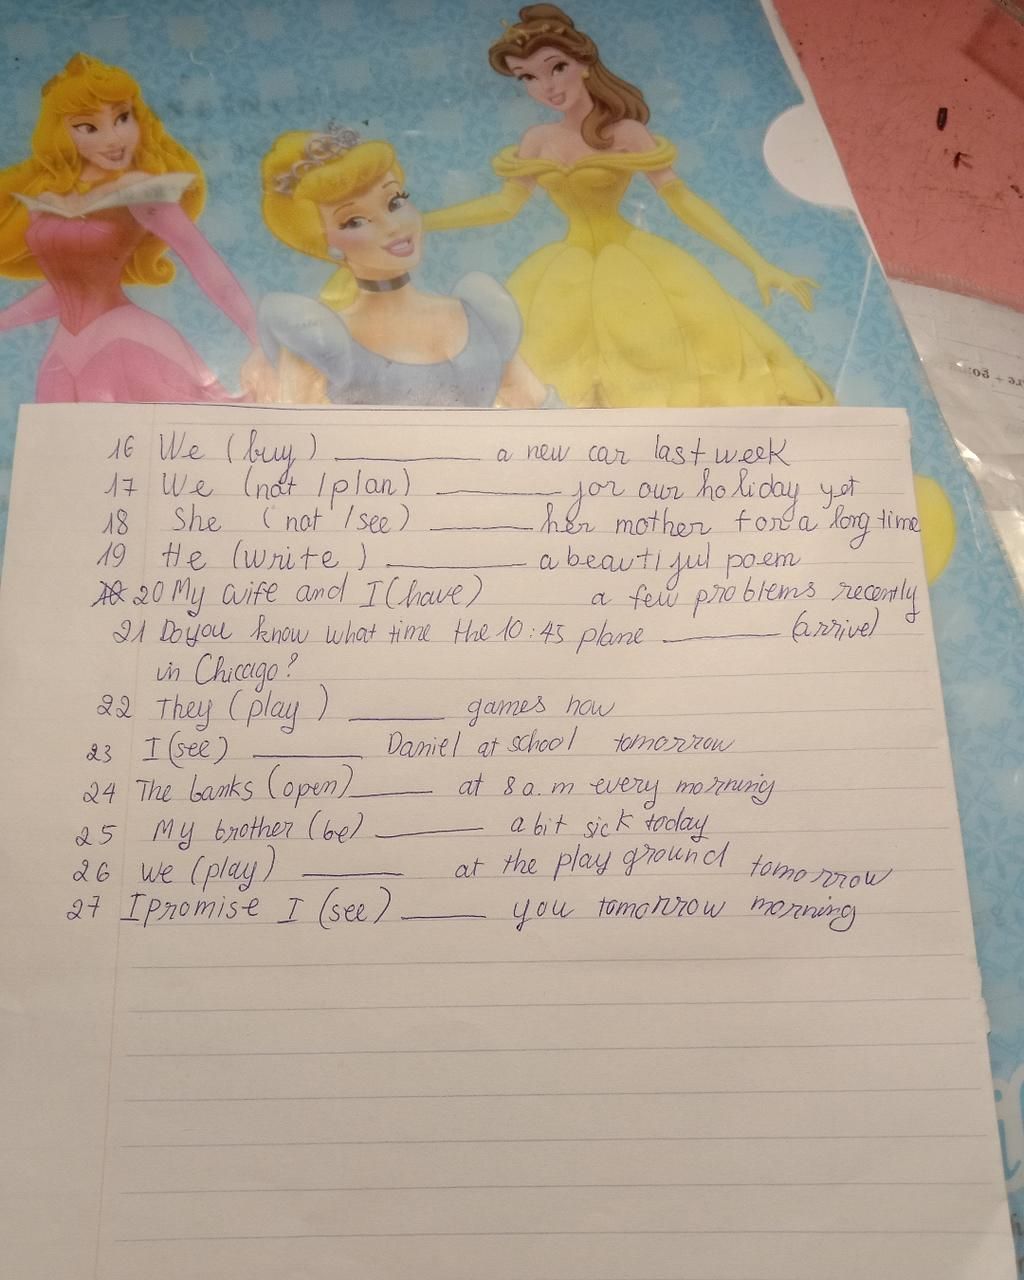 16 We (buy) ________ a new car last week
17 We (not / plan) ________ for our holiday yet
18 She (not / see) ________ her mother for a long time
19 He (write) ________ a beautiful poem
20 My wife and I (have) a few problems recently
21 Do you know what time the 10:45 plane ________ (arrive)
in Chicago?
22 They (play) ________ games now
23 I (see) ________ Daniel at school tomorrow
24 The banks (open) ________ at 8 a.m every morning
25 My brother (be) ________ a bit sick today
26 We (play) ________ at the play ground tomorrow
27 I promise I (see) ________ you tomorrow morning